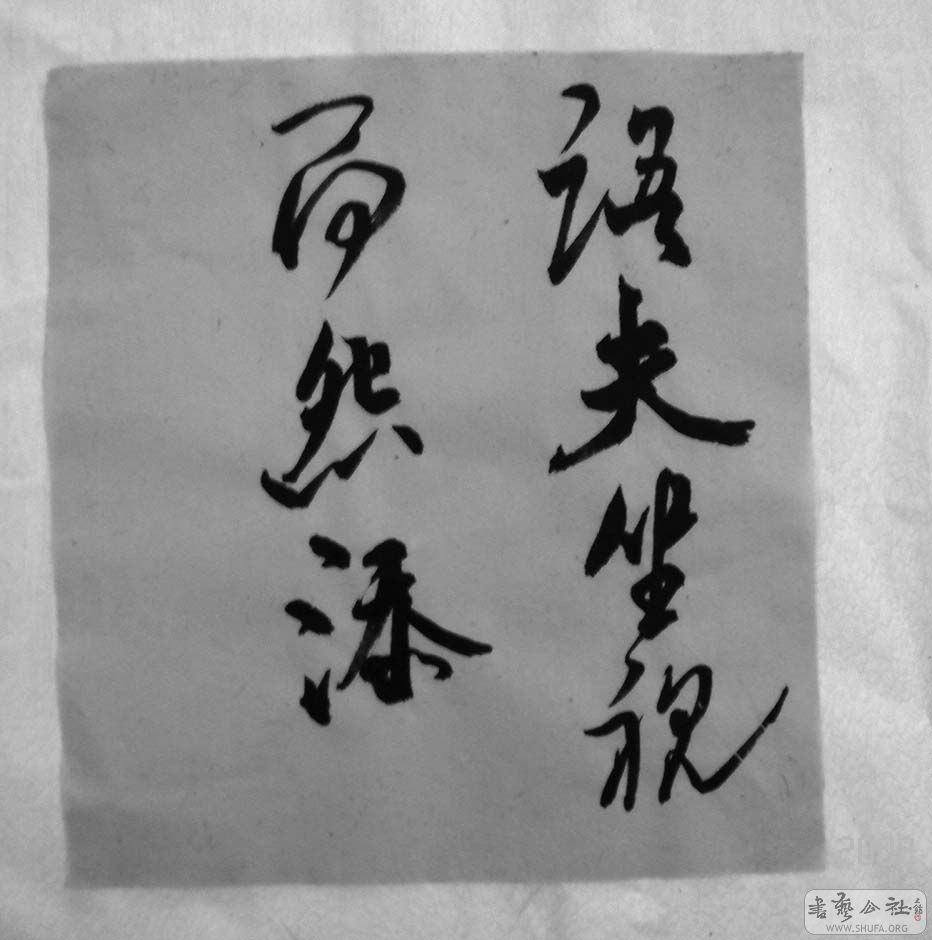 語夫坐視
而怨添
書藝公社
WWW.SHUFA.ORG